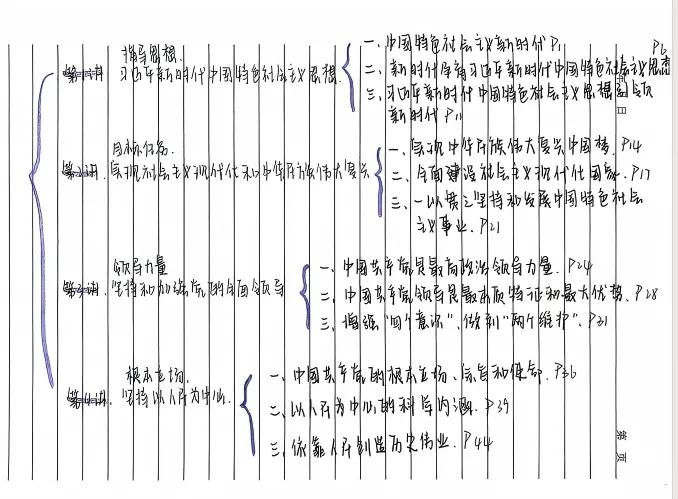 指导思想.
第一讲 习近平新时代中国特色社会主义思想.
一、中国特色社会主义新时代 P1
二、新时代孕育习近平新时代中国特色社会主义思想 P6
三、习近平新时代中国特色社会主义思想引领
新时代 P11
目标任务.
第2讲. 实现社会主义现代化和中华民族伟大复兴
一、实现中华民族伟大复兴中国梦. P14
二、全面建设社会主义现代化国家. P17
三、一以贯之坚持和发展中国特色社会
主义事业. P21
领导力量
第3讲. 坚持和加强党的全面领导
一、中国共产党是最高政治领导力量. P24
二、中国共产党领导是最本质特征和最大优势. P28
三、增强"四个意识", 做到"两个维护". P31
根本立场.
第4讲. 坚持以人民为中心.
一、中国共产党的根本立场、宗旨和使命. P36
二、以人民为中心的科学内涵. P39
三、依靠人民创造历史伟业. P44
日
第 页